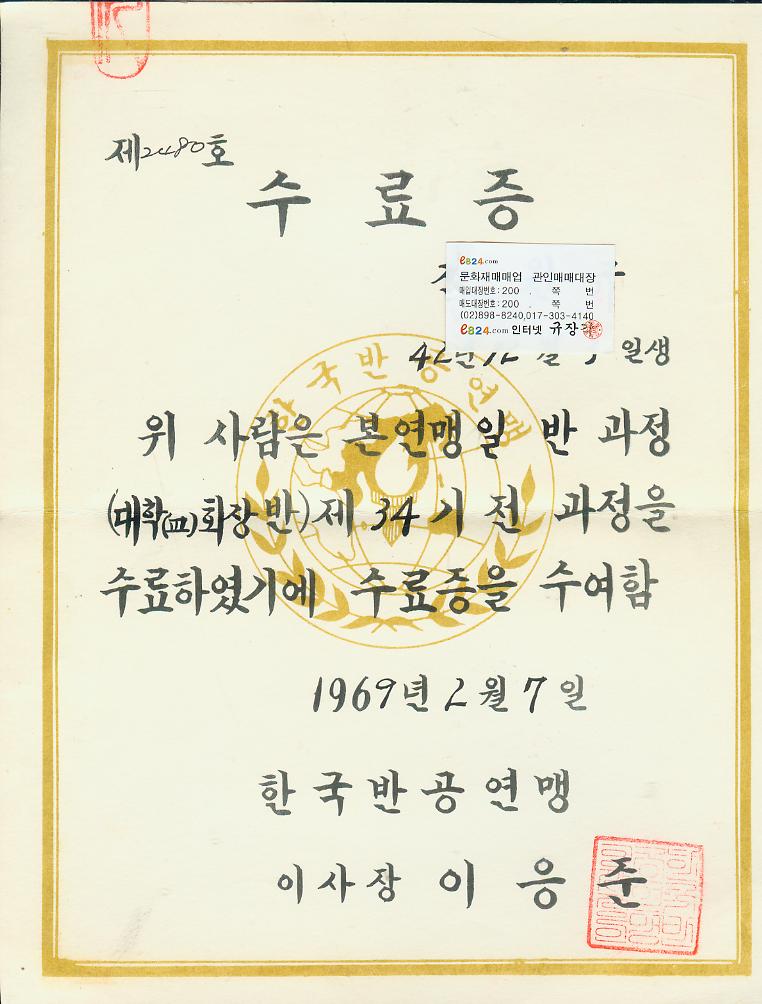 제2480호
수료증
e824.com
문화재매매업 관인매매대장
매입대장번호:200 . 쪽 번
매도대장번호:200 . 쪽 번
(02)898-8240,017-303-4140
e824.com 인터넷 규장각
42년 12월 일생
한국반공연맹
위 사람은 본연맹일반 과정
(대학(四)회장반)제34기 전 과정을
수료하였기에 수료증을 수여함
1969년 2월 7일
한국반공연맹
이사장 이응준